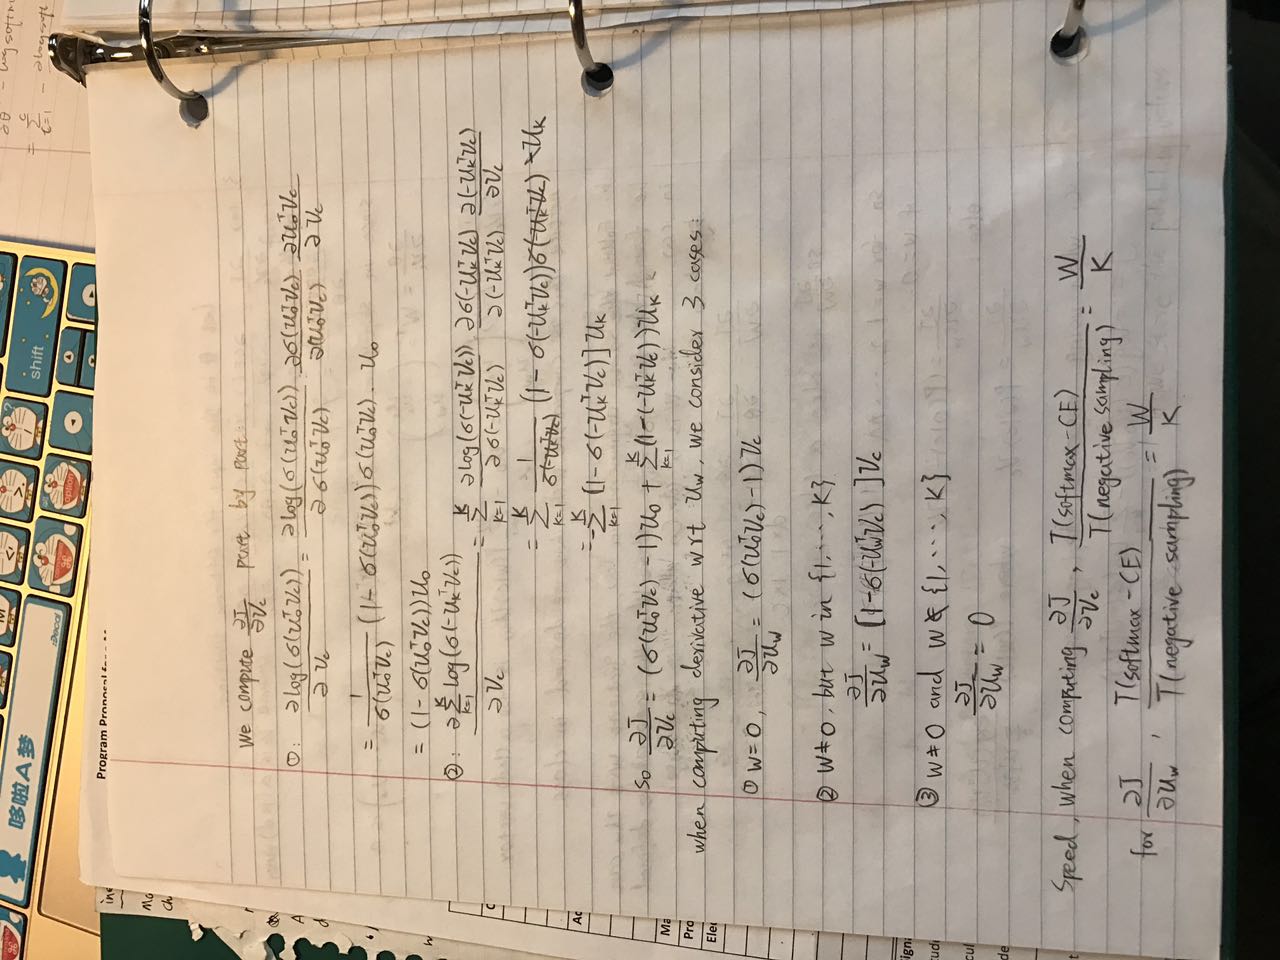 We compute ∂J/∂Vc part by part:
①: ∂log(σ(UoᵀVc))/∂Vc = ∂log(σ(UoᵀVc))/∂σ(UoᵀVc) ∂σ(UoᵀVc)/∂(UoᵀVc) ∂UoᵀVc/∂Vc
= 1/σ(UoᵀVc) (1 - σ(UoᵀVc))σ(UoᵀVc) · Uo
= (1 - σ(UoᵀVc))Uo
②: ∂∑ₖ₌₁ᴷ log(σ(-UkᵀVc))/∂Vc = ∑ₖ₌₁ᴷ ∂log(σ(-UkᵀVc))/∂σ(-UkᵀVc) ∂σ(-UkᵀVc)/∂(-UkᵀVc) ∂(-UkᵀVc)/∂Vc
= ∑ₖ₌₁ᴷ 1/σ(-UkᵀVc) (1 - σ(-UkᵀVc))σ(-UkᵀVc) · -Uk
= -∑ₖ₌₁ᴷ [1 - σ(-UkᵀVc)]Uk
So ∂J/∂Vc = (σ(UoᵀVc) - 1)Uo + ∑ₖ₌₁ᴷ (1-(-UkᵀVc))Uk
when computing derivative wrt Uw, we consider 3 cases:
① W=0, ∂J/∂Uw = (σ(UoᵀVc)-1)Vc
② W≠0, but W in {1,...,K}
∂J/∂Uw = [1-σ(-UwᵀVc)]Vc
③ W≠0 and W∉{1,...,K}
∂J/∂Uw = 0
Speed, when computing ∂J/∂Vc, T(softmax-CE)/T(negative sampling) = W/K
for ∂J/∂Uw, T(softmax-CE)/T(negative sampling) = W/K
Program Proposal
哆啦A梦
shift